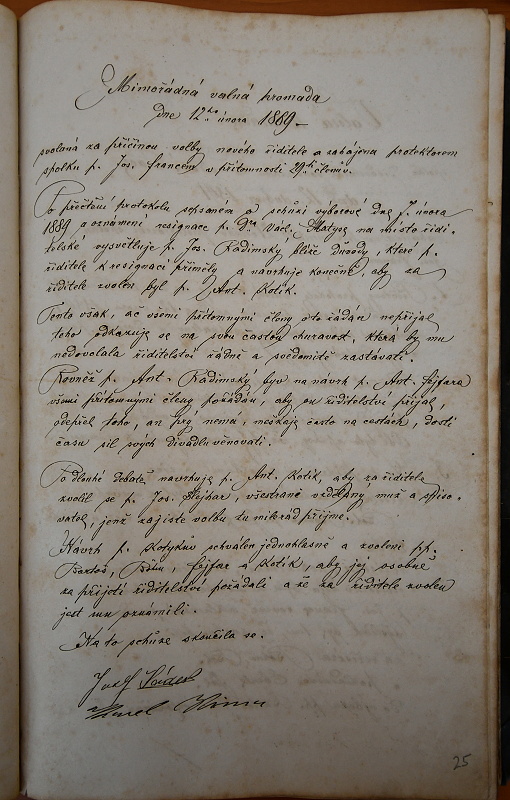 Mimořádná valná hromada
dne 12ho února 1889 –
svolaná za příčinou volby nového ředitele a zahájena protektorem
spolku p. Jos. Francem v přítomnosti 29ti členův.
Po přečtení protokolu sepsaném o schůzi výborové dne 7. února
1889 a oznámení resignace p. Dra Václ. Matyse na místo ředi-
telské vysvětluje p. Jos. Radimský blíže důvody, které p.
ředitele k resignaci přiměly a navrhuje konečně, aby za
ředitele zvolen byl p. Ant. Kotík.
Tento však, ač všemi přítomnými členy o to žádán nepřijal
toho odkazuje se na svou častou churavost, která by mu
nedovolala ředitelství řádně a svědomitě zastávati.
Rovněž p. Ant. Radimský byv na návrh p. Ant. Fejfara
všemi přítomnými členy požádán, aby on ředitelství přijal,
odepřel toho, an prý nemá, meškaje často na cestách, dosti
času sil svých divadlu věnovati.
Po dlouhé debatě navrhuje p. Ant. Kotík, aby za ředitele
zvolil se p. Jos. Šlejhar, všestraně vzdělaný muž a spiso-
vatel, jenž zajisté volbu tu milerád přijme.
Návrh p. Kotykův schválen jednohlasně a zvoleni pp.
Bartoš, Fejfar a Kotík, aby jej osobně
za přijetí ředitelství požádali a že za ředitele zvolen
jest mu oznámili.
Na to schůze skončila se.
Josef
Karel
25